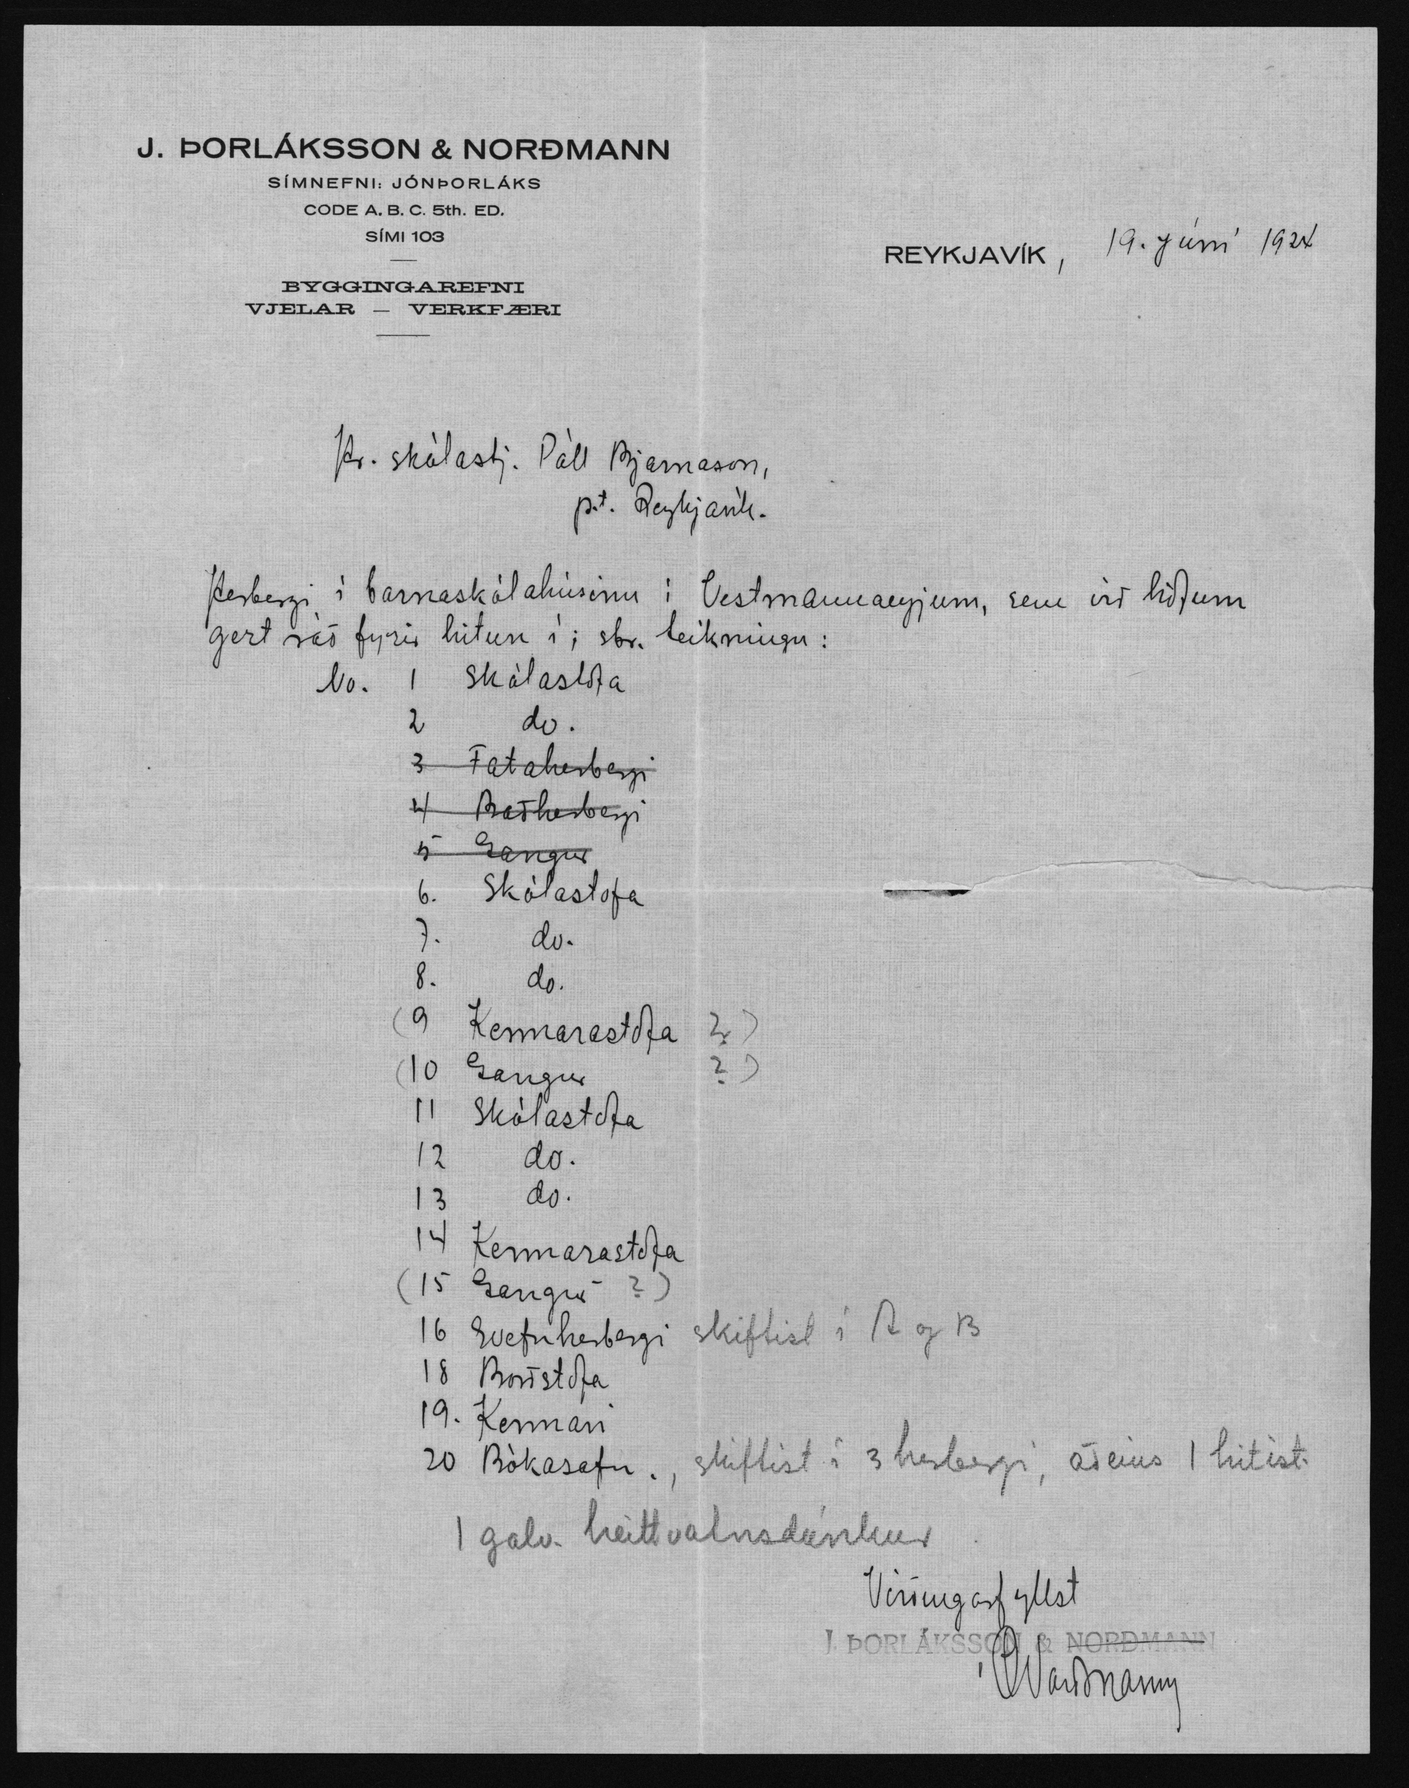 J. ÞORLÁKSSON & NORÐMANN
SÍMNEFNI: JÓNÞORLÁKS
CODE A. B. C. 5th. ED.
SÍMI 103
BYGGINGAREFNI
VJELAR — VERKFÆRI
REYKJAVÍK, 19. júní 1924
Hr. skólastj. Páll Bjarnason,
p.t. Reykjavík.
Herbergi í barnaskólahúsinu í Vestmannaeyjum, sem við höfum
gert ráð fyrir hitun í; sbr. teikningu:
No. 1 Skólastofa
2 do.
3 Fataherbergi
4 Baðherbergi
5 Gangur
6. Skólastofa
7. do.
8. do.
(9 Kennarastofa ?)
(10 Gangur ?)
11 Skólastofa
12 do.
13 do.
14 Kennarastofa
(15 Gangur ?)
16 Svefnherbergi skiftist í A og B
18 Borðstofa
19. Kennari
20 Bókasafn., skiftist í 3 herbergi, aðeins 1 hitist.
1 galv. heittvatnsdúnkur
Virðingarfyllst
J. ÞORLÁKSSON & NORÐMANN